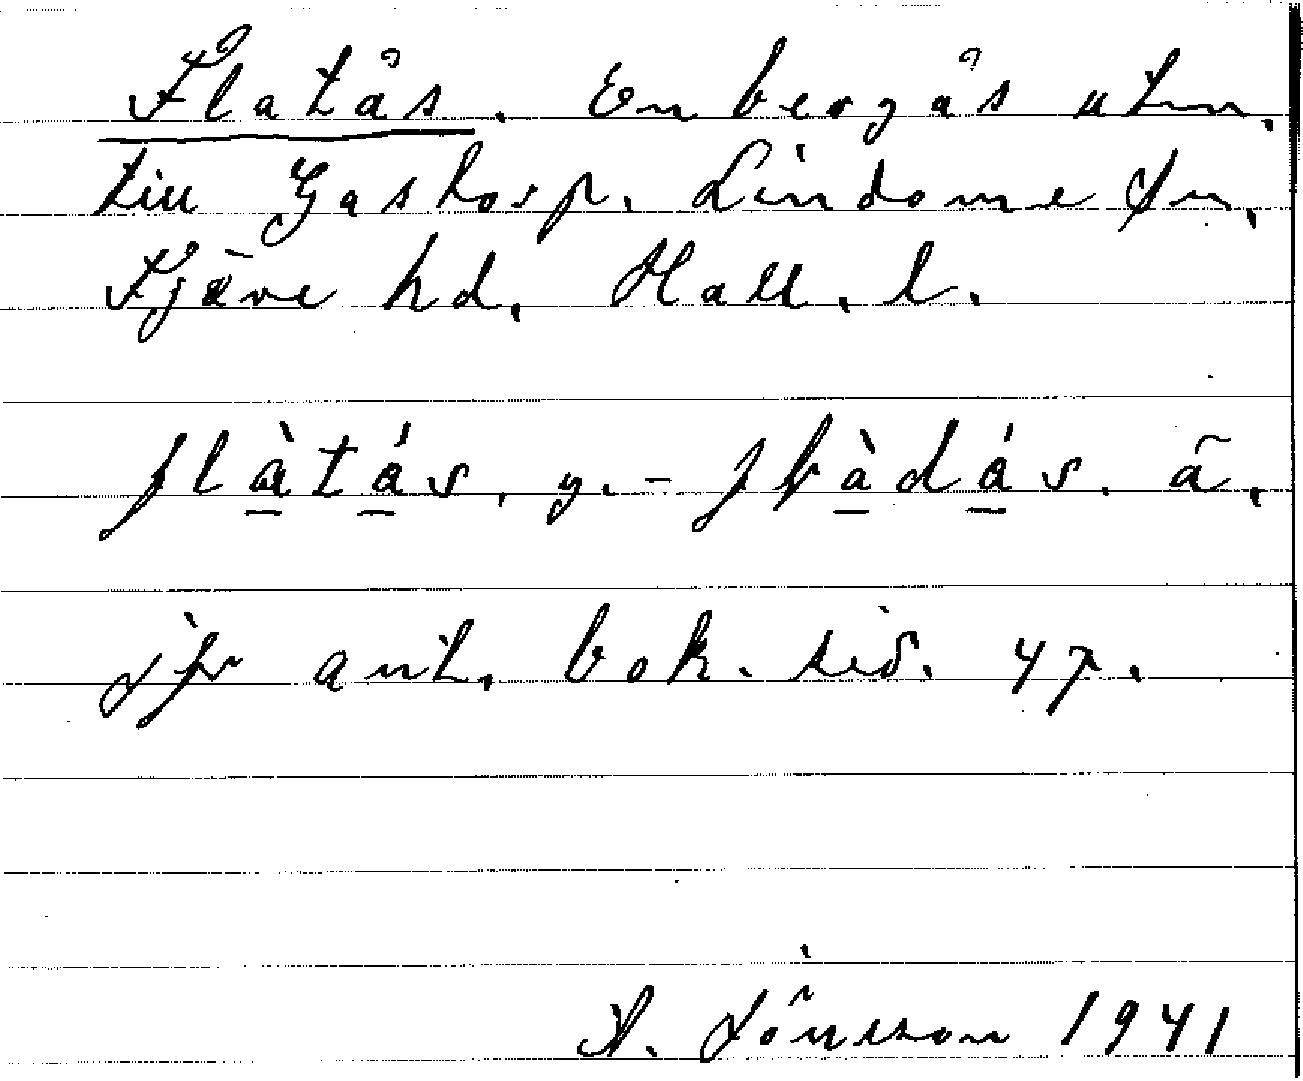 Flatås. En bergås utm.
till Gastorp. Lindome sn,
Fjäre hd, Hall. l.
flàtás. y. - flàdás. ä.
jfr ant. bok. sid. 47.
A. Jönsson 1941